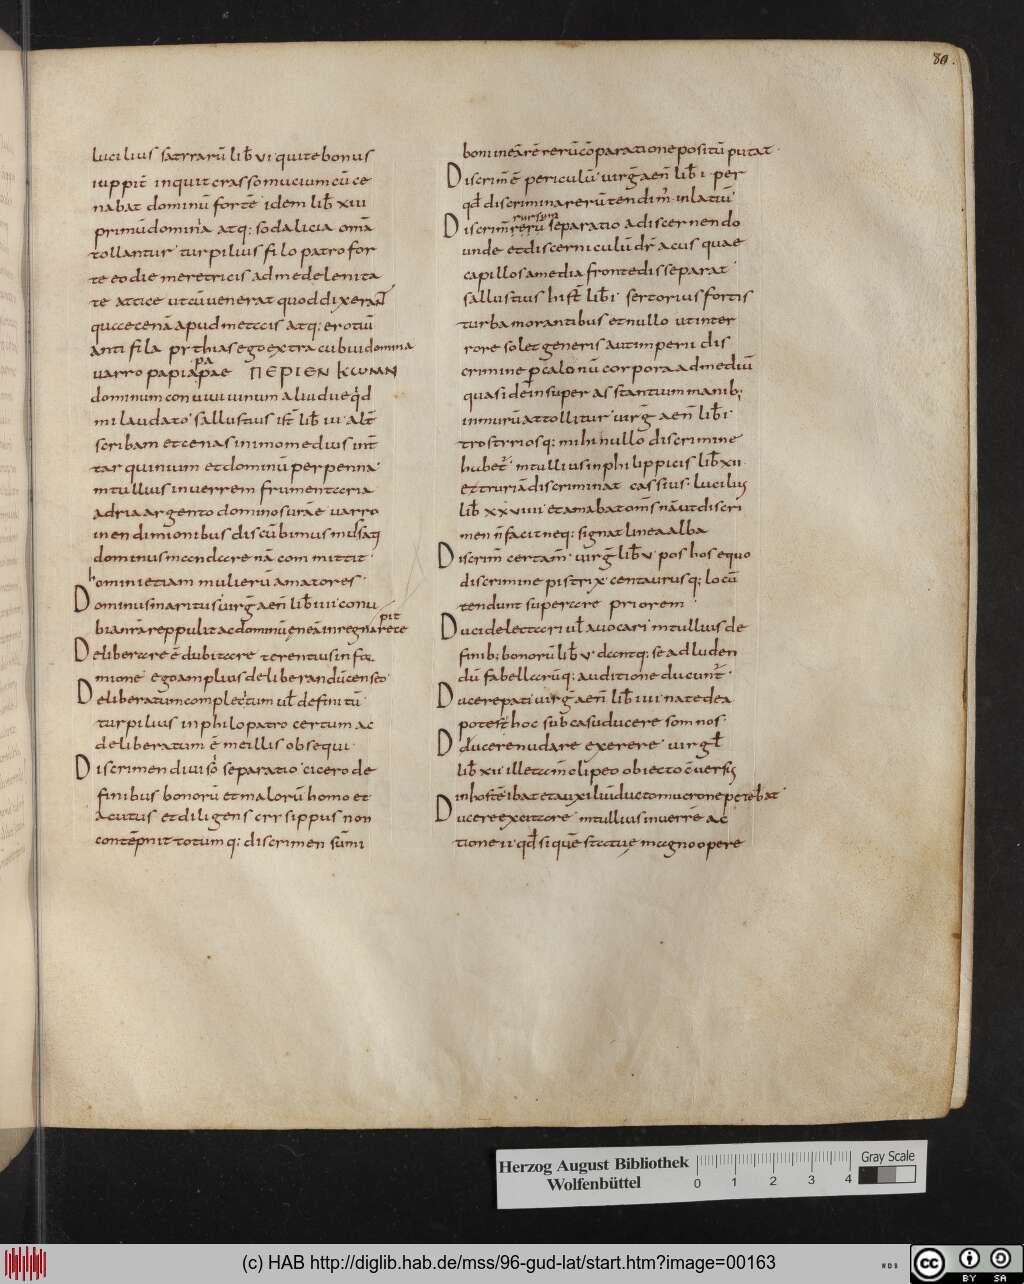 80.
lucilius satrrarū lib̄ vi quite bonus
iuppit̄ inquit crassomucium cū ce
nabat dominū forte idem lib̄ xiii
primū domina atq; sodalicia om̄a
tollantur turpilius filo patro for
te eo die meretricis ad me delenita
te attice ut cū uenerat quod dixerant
quae cenā apud meteis atq; erotiū
anti fila pythias ego extra cubui domina
uarro papia papae ΠΕΡΙΕΝ ΚωΜΝ
dominum conuiuii uinum aliud ueq̇d
mi laudato sallustius ist̄ lib̄ iii alt̄
scribam et cenas in imo medius int̄
tarquinium et dominū perpenna
mtullius inuerrem frumentaria
adria argento dominos urāe uarro
in endimionibus discūbimus musaq
dominus maendaere nā committit
homini etiam mulierū amatores
Dominus maritus uirḡ aen̄ lib̄ iiii conu
bia nr̄a reppulit ac dominū ęneā in regna recepit
Deliberare ē dubitare terentius in for
mione ego amplius deliberandū censeo
Deliberatum complectum ul̄ definitū
turpilius in philopatro certum ac
deliberatum ē me illis obsequi
Discrimen diuisō separatio cicero de
finibus bonorū et malorū homo et
acutus et diligens crrsippus non
contēpnit totumq; discrimen sūmi
bom in eārē rerū cōparatione positū putat
Discrim̄ ē periculū uirḡ aen̄ lib̄ i per
qd̄ discrimina rerū tendim̄ in latiū
rursum
Discrim̄ rerū separatio a discernendo
unde et discerniculū dr̄ acus quae
capillos a media fronte disseparat
sallustius hist̄ lib̄ i sertorius fortis
turba morantibus et nullo ut inter
rore solet generis aut imperii dis
crimine p calonū corpora ad mediū
quasi dein super asstantium manib;
in murū attollitur uirḡ aen̄ lib̄ i
trostrriosq; mihi nullo discrimine
hubet̄ mtullius in philippicis lib̄ xii
etruriā discriminat cassius lucilius
lib̄ xxviiii et amabat om̄s nā ut discri
men n̄ facit neq; signat linea alba
Discrim̄ certam̄ uirḡ lib̄ v pos hos equo
discrimine pistrix centaurusq; locū
tendunt superare priorem
Duci delectari ul̄ auocari mtullius de
finib; bonorū lib̄ v dcentq; se ad luden
dū fabellarūq; auditione ducunt̄
Ducere pati uirḡ aen̄ lib̄ iiii nate dea
potest hoc sub casu ducere somnos
Dducere nudare exerere uirgl̄
lib̄ xii ille tam̄ clipeo obiecto cūersus
in hostē ibat et auxiliū ducto mucrone petebat
Ducere excitare mtullius inuerre ac
tione ii qd̄ si quē statuę magno opere
Herzog August Bibliothek
Wolfenbüttel
0 1 2 3 4
Gray Scale
(c) HAB http://diglib.hab.de/mss/96-gud-lat/start.htm?image=00163
WDB
cc BY SA